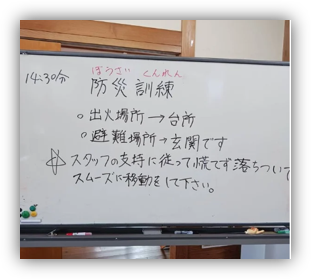 ぼうさい くんれん
14:30分 防災訓練
○出火場所→台所
○避難場所→玄関です
☆スタッフの支持に従って慌てず落ちついて
スムーズに移動をして下さい。